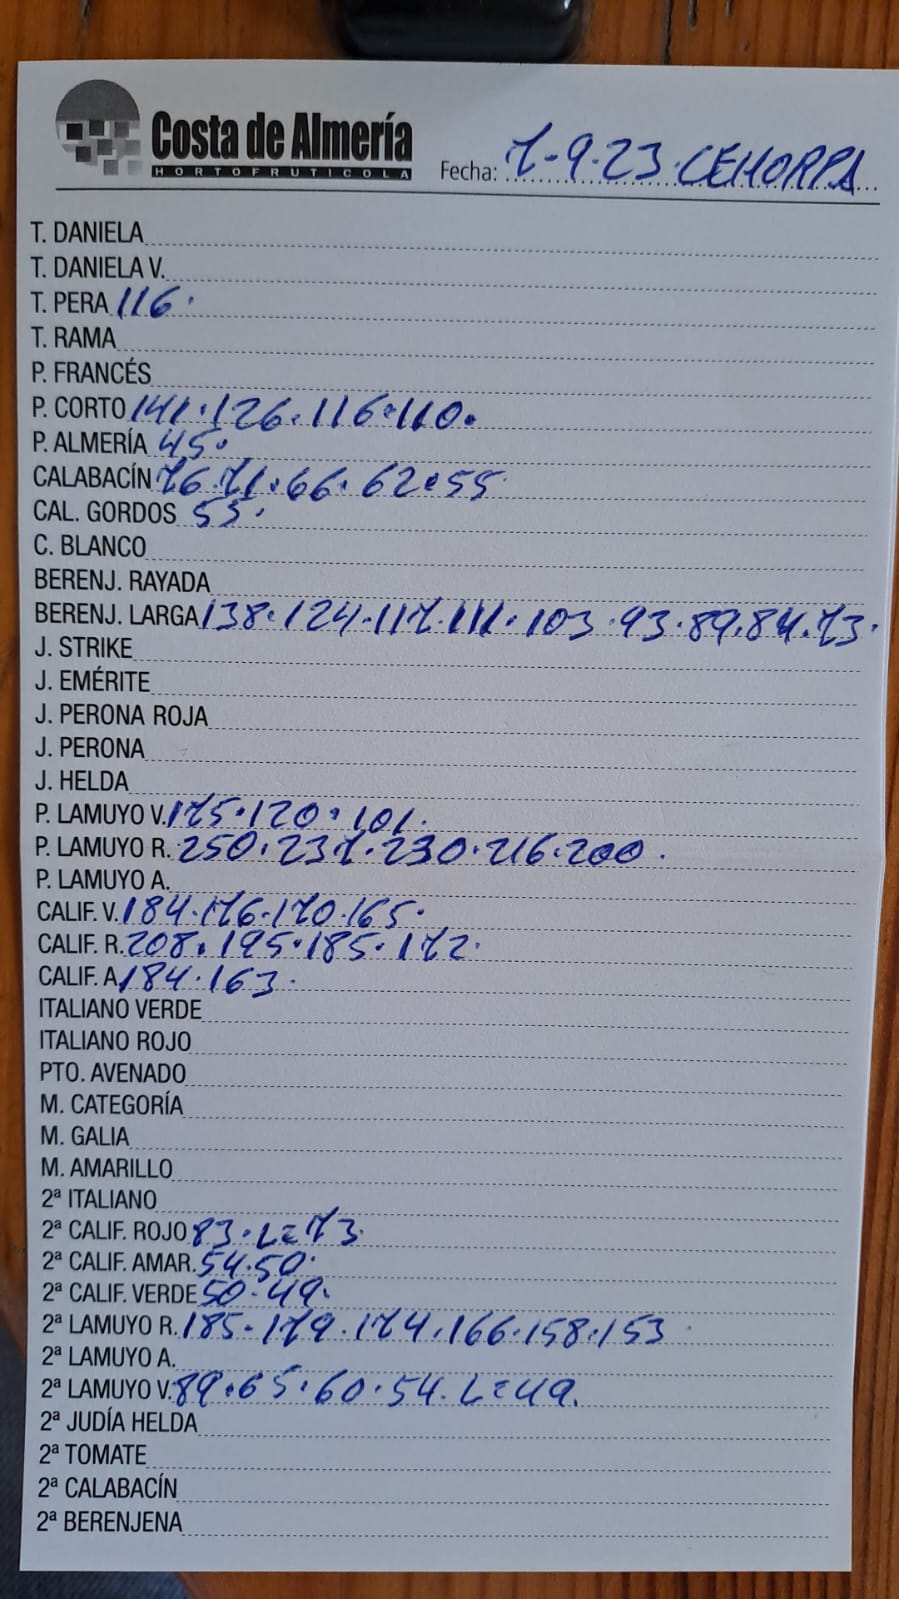 Costa de Almería
HORTOFRUTICOLA
Fecha: 7-9-23. CEHORPA
T. DANIELA
T. DANIELA V.
T. PERA 116.
T. RAMA
P. FRANCÉS
P. CORTO 141.126.116.110.
P. ALMERÍA 45.
CALABACÍN 76.71.66.62.55
CAL. GORDOS 55.
C. BLANCO
BERENJ. RAYADA
BERENJ. LARGA 138.124.117.111.103.93.89.84.73.
J. STRIKE
J. EMÉRITE
J. PERONA ROJA
J. PERONA
J. HELDA
P. LAMUYO V. 175.120.101.
P. LAMUYO R. 250.237.230.216.200.
P. LAMUYO A.
CALIF. V. 184.176.170.165.
CALIF. R. 208.195.185.172.
CALIF. A 184.163.
ITALIANO VERDE
ITALIANO ROJO
PTO. AVENADO
M. CATEGORÍA
M. GALIA
M. AMARILLO
2ª ITALIANO
2ª CALIF. ROJO 83.L=73.
2ª CALIF. AMAR. 54.50.
2ª CALIF. VERDE 50.49.
2ª LAMUYO R. 185.179.174.166.158.153
2ª LAMUYO A.
2ª LAMUYO V. 89.65.60.54.L=49.
2ª JUDÍA HELDA
2ª TOMATE
2ª CALABACÍN
2ª BERENJENA